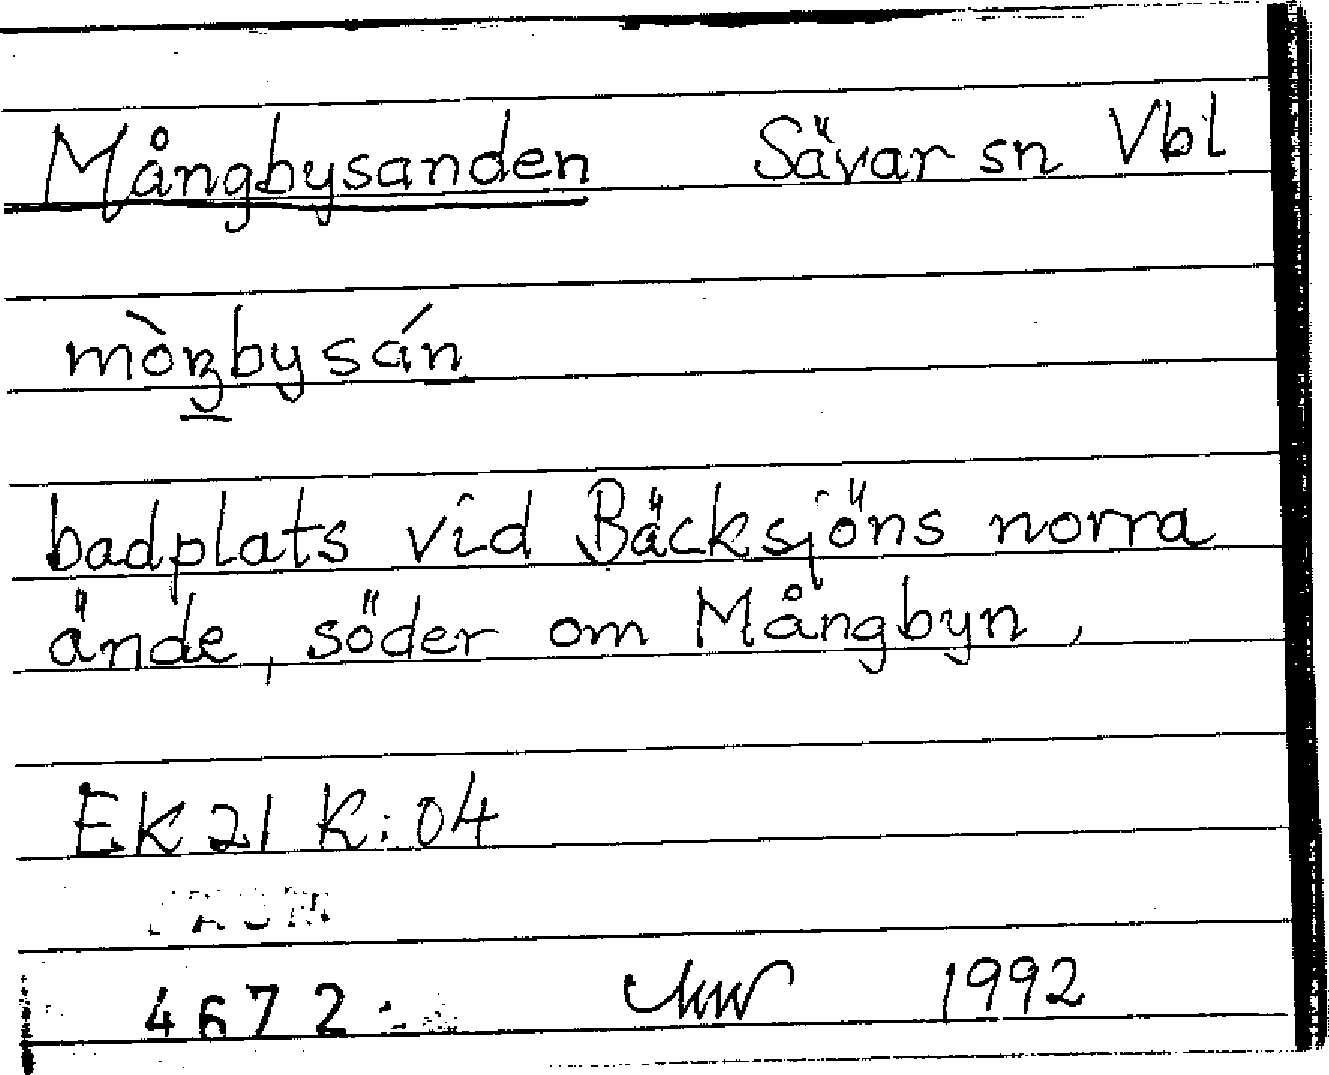 Mångbysanden Sävar sn Vbl
mòŋbysán
badplats vid Bäcksjöns norra
ände, söder om Mångbyn,
EK 21 K: 04
4672
1992